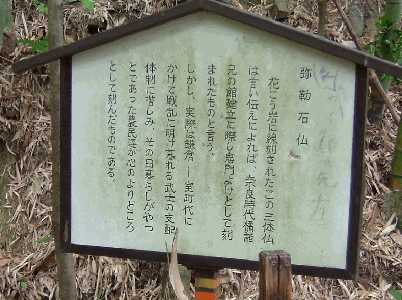 弥勒石仏
花こう岩に線刻されたこの三体仏
は言い伝えによれば、奈良時代橘諸
兄の館建立に際し鬼門よけとして刻
まれたものと言う。
しかし、実際は鎌倉―室町代に
かけて戦乱に明け暮れる武士の支配
体制に苦しみ、その日暮らしがやっ
とであった農民達が心のよりどころ
として刻んだものである。